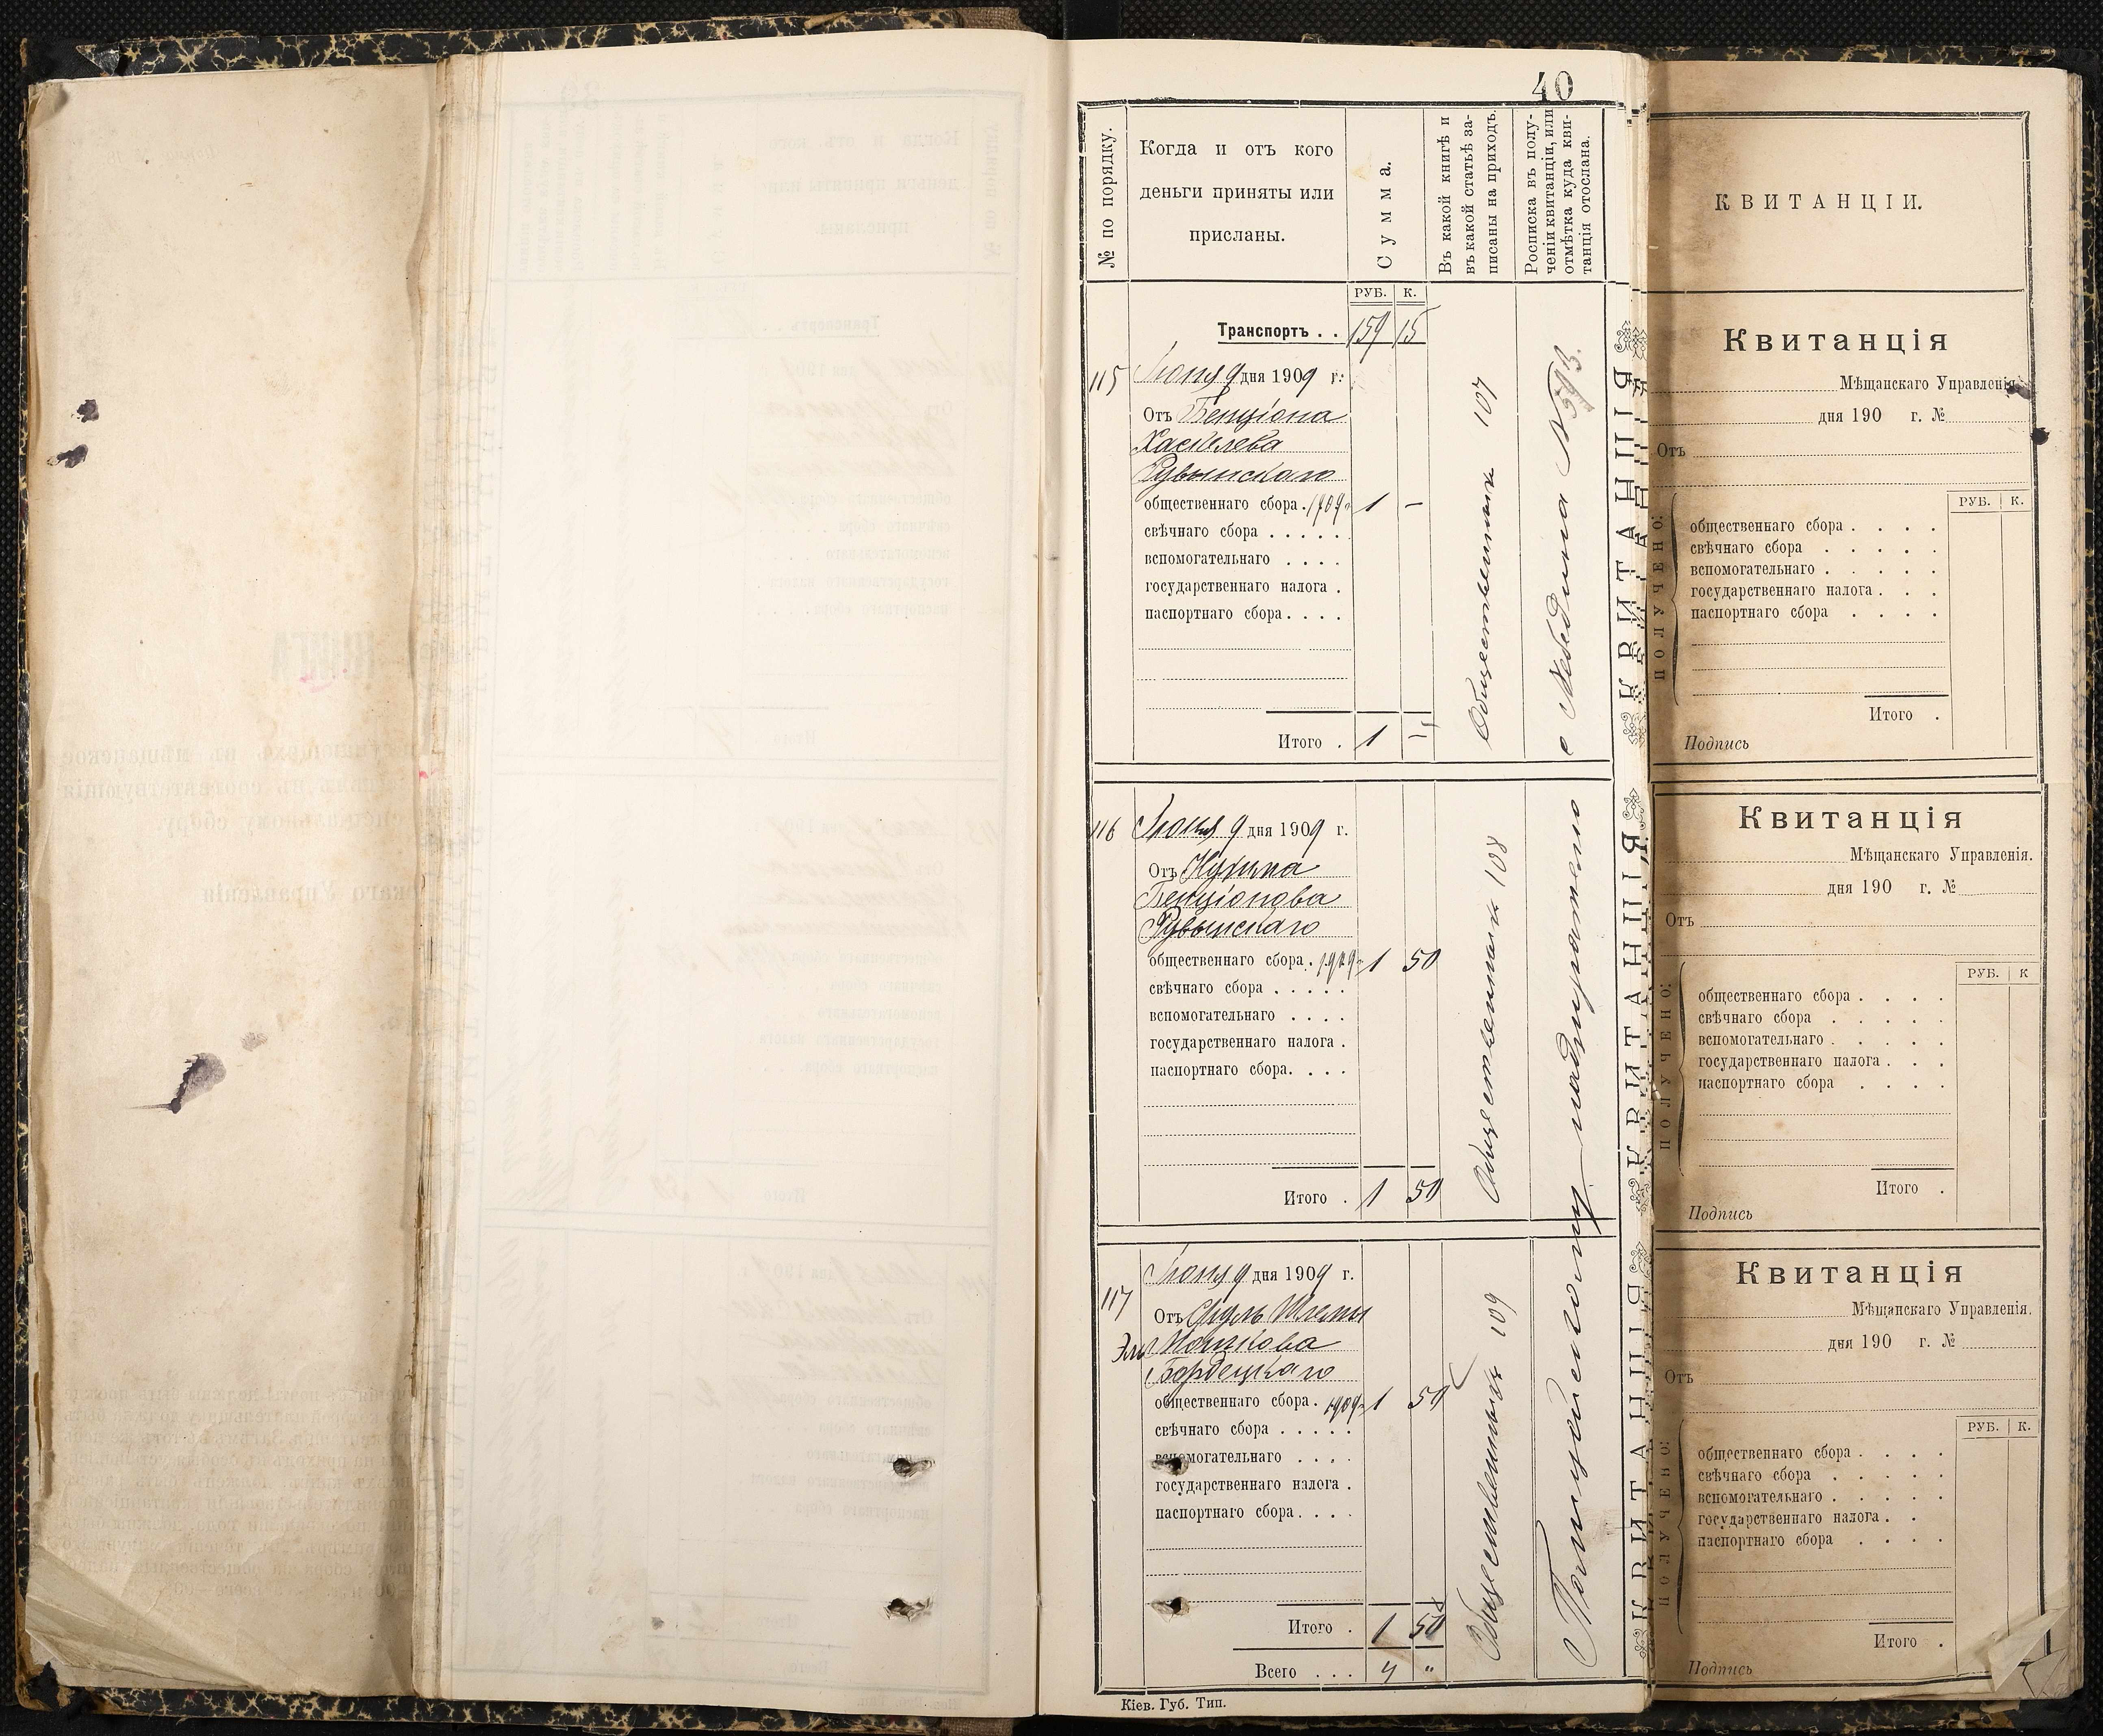 40
№ по порядку.
Когда и отъ кого
деньги приняты или
присланы.
Сумма.
Въ какой книгѣ и
въ какой статьѣ за-
писаны на приходъ.
Росписка въ полу-
ченіи квитанціи, или
отмѣтка куда кви-
танція отослана.
РУБ. К.
Транспортъ . . 159 15
115
Іюня 9 дня 1909 г.
Отъ Бенціона
Хаскелева
Рувинскаго
общественнаго сбора. 1909 1 —
свѣчнаго сбора . . . . .
вспомогательнаго . . . .
государственнаго налога .
паспортнаго сбора. . . .
Итого . 1 —
Общественныхъ 107
116
Іюня 9 дня 1909 г.
Отъ Нухима
Бенціонова
Рувинскаго
общественнаго сбора. 1909 1 50
свѣчнаго сбора . . . . .
вспомогательнаго . . . .
государственнаго налога .
паспортнаго сбора. . . .
Итого . 1 50
Общественныхъ 108
117
Іюня 9 дня 1909 г.
Отъ Сруль Шлемы
Мошкова
Бордецкаго
общественнаго сбора. 1909 1 50
свѣчнаго сбора . . . . .
вспомогательнаго . . . .
государственнаго налога .
паспортнаго сбора. . . .
Итого . 1 50
Всего . . . 4 "
Общественныхъ 109
Полицейскому надзирателю
Кіев. Губ. Тип.
КВИТАНЦІЯ
КВИТАНЦІЯ
КВИТАНЦІЯ
КВИТАНЦІИ.
Квитанція
Мѣщанскаго Управленія
дня 190 г. №
Отъ
РУБ. К.
ПОЛУЧЕНО:
общественнаго сбора . . . .
свѣчнаго сбора . . . . .
вспомогательнаго . . . . .
государственнаго налога . . .
паспортнаго сбора . . . .
Итого .
Подпись
Квитанція
Мѣщанскаго Управленія.
дня 190 г. №
Отъ
РУБ. К
ПОЛУЧЕНО:
общественнаго сбора . . . .
свѣчнаго сбора . . . . .
вспомогательнаго . . . . .
государственнаго налога . . .
паспортнаго сбора . . . .
Итого .
Подпись
Квитанція
Мѣщанскаго Управленія.
дня 190 г. №
Отъ
РУБ. К.
ПОЛУЧЕНО:
общественнаго сбора . . . .
свѣчнаго сбора . . . . .
вспомогательнаго . . . . .
государственнаго налога . .
паспортнаго сбора . . . .
Итого .
Подпись